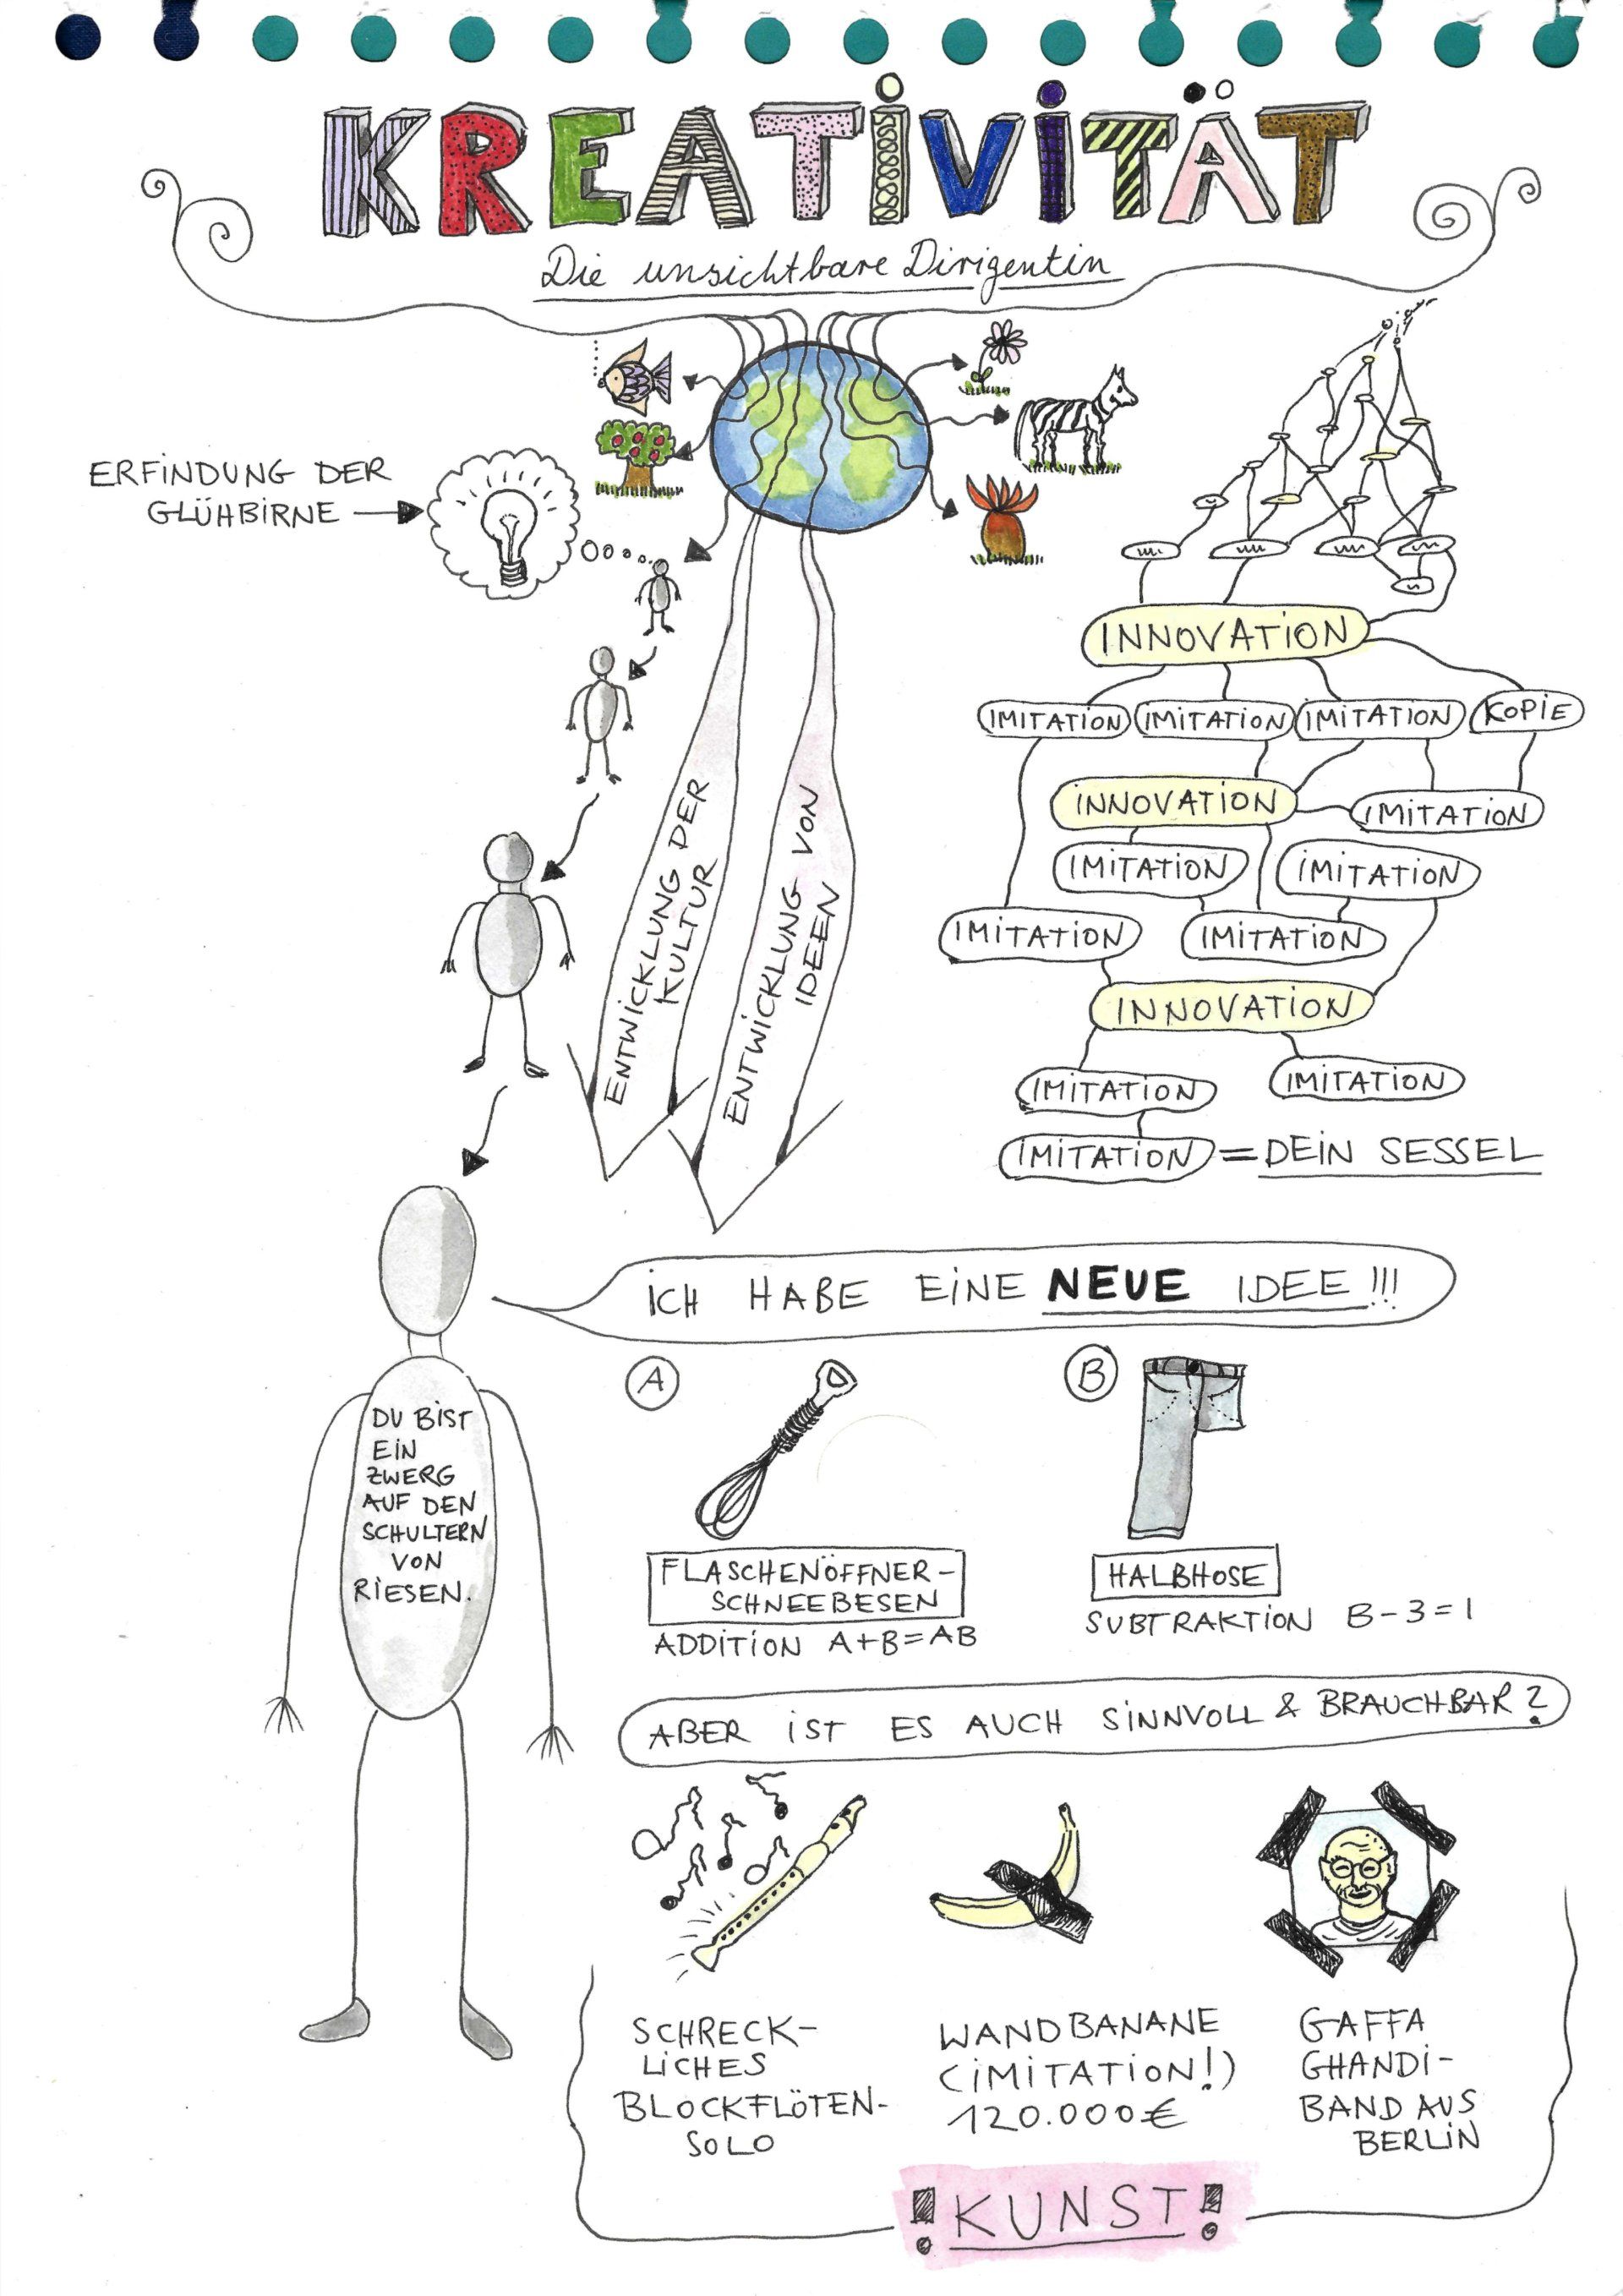 KREATIVITÄT
Die unsichtbare Dirigentin
ERFINDUNG DER
GLÜHBIRNE
ENTWICKLUNG DER
KULTUR
ENTWICKLUNG VON
IDEEN
INNOVATION
IMITATION IMITATION IMITATION KOPIE
INNOVATION
IMITATION
IMITATION
IMITATION
IMITATION
IMITATION
INNOVATION
IMITATION
IMITATION
IMITATION = DEIN SESSEL
ICH HABE EINE NEUE IDEE!!!
DU BIST
EIN
ZWERG
AUF DEN
SCHULTERN
VON
RIESEN.
A
FLASCHENÖFFNER-
SCHNEEBESEN
ADDITION A+B=AB
B
HALBHOSE
SUBTRAKTION B-3=1
ABER IST ES AUCH SINNVOLL & BRAUCHBAR?
SCHRECK-
LICHES
BLOCKFLÖTEN-
SOLO
WANDBANANE
(IMITATION!)
120.000€
GAFFA
GHANDI-
BAND AUS
BERLIN
!KUNST!